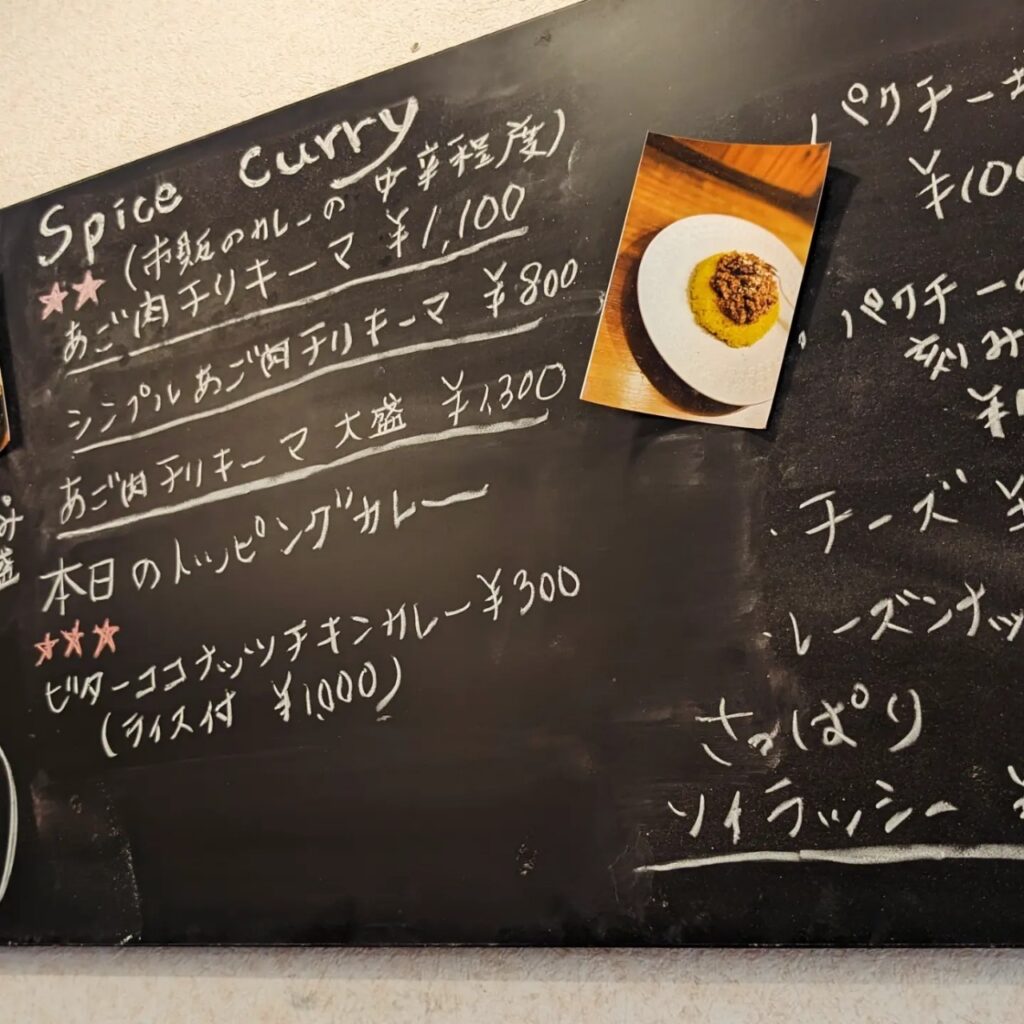 Spice curry
★★ (市販のカレーの中辛程度)
あご肉チリキーマ ¥1,100
シンプルあご肉チリキーマ ¥800
あご肉チリキーマ 大盛 ¥1,300
本日のトッピングカレー
★★★
ビターココナッツチキンカレー ¥300
(ライス付 ¥1,000)
み
盛
・パクチー
¥100
・パクチーの
刻み
¥
・チーズ ¥
・レーズンナッ
さっぱり
ソイラッシー ¥